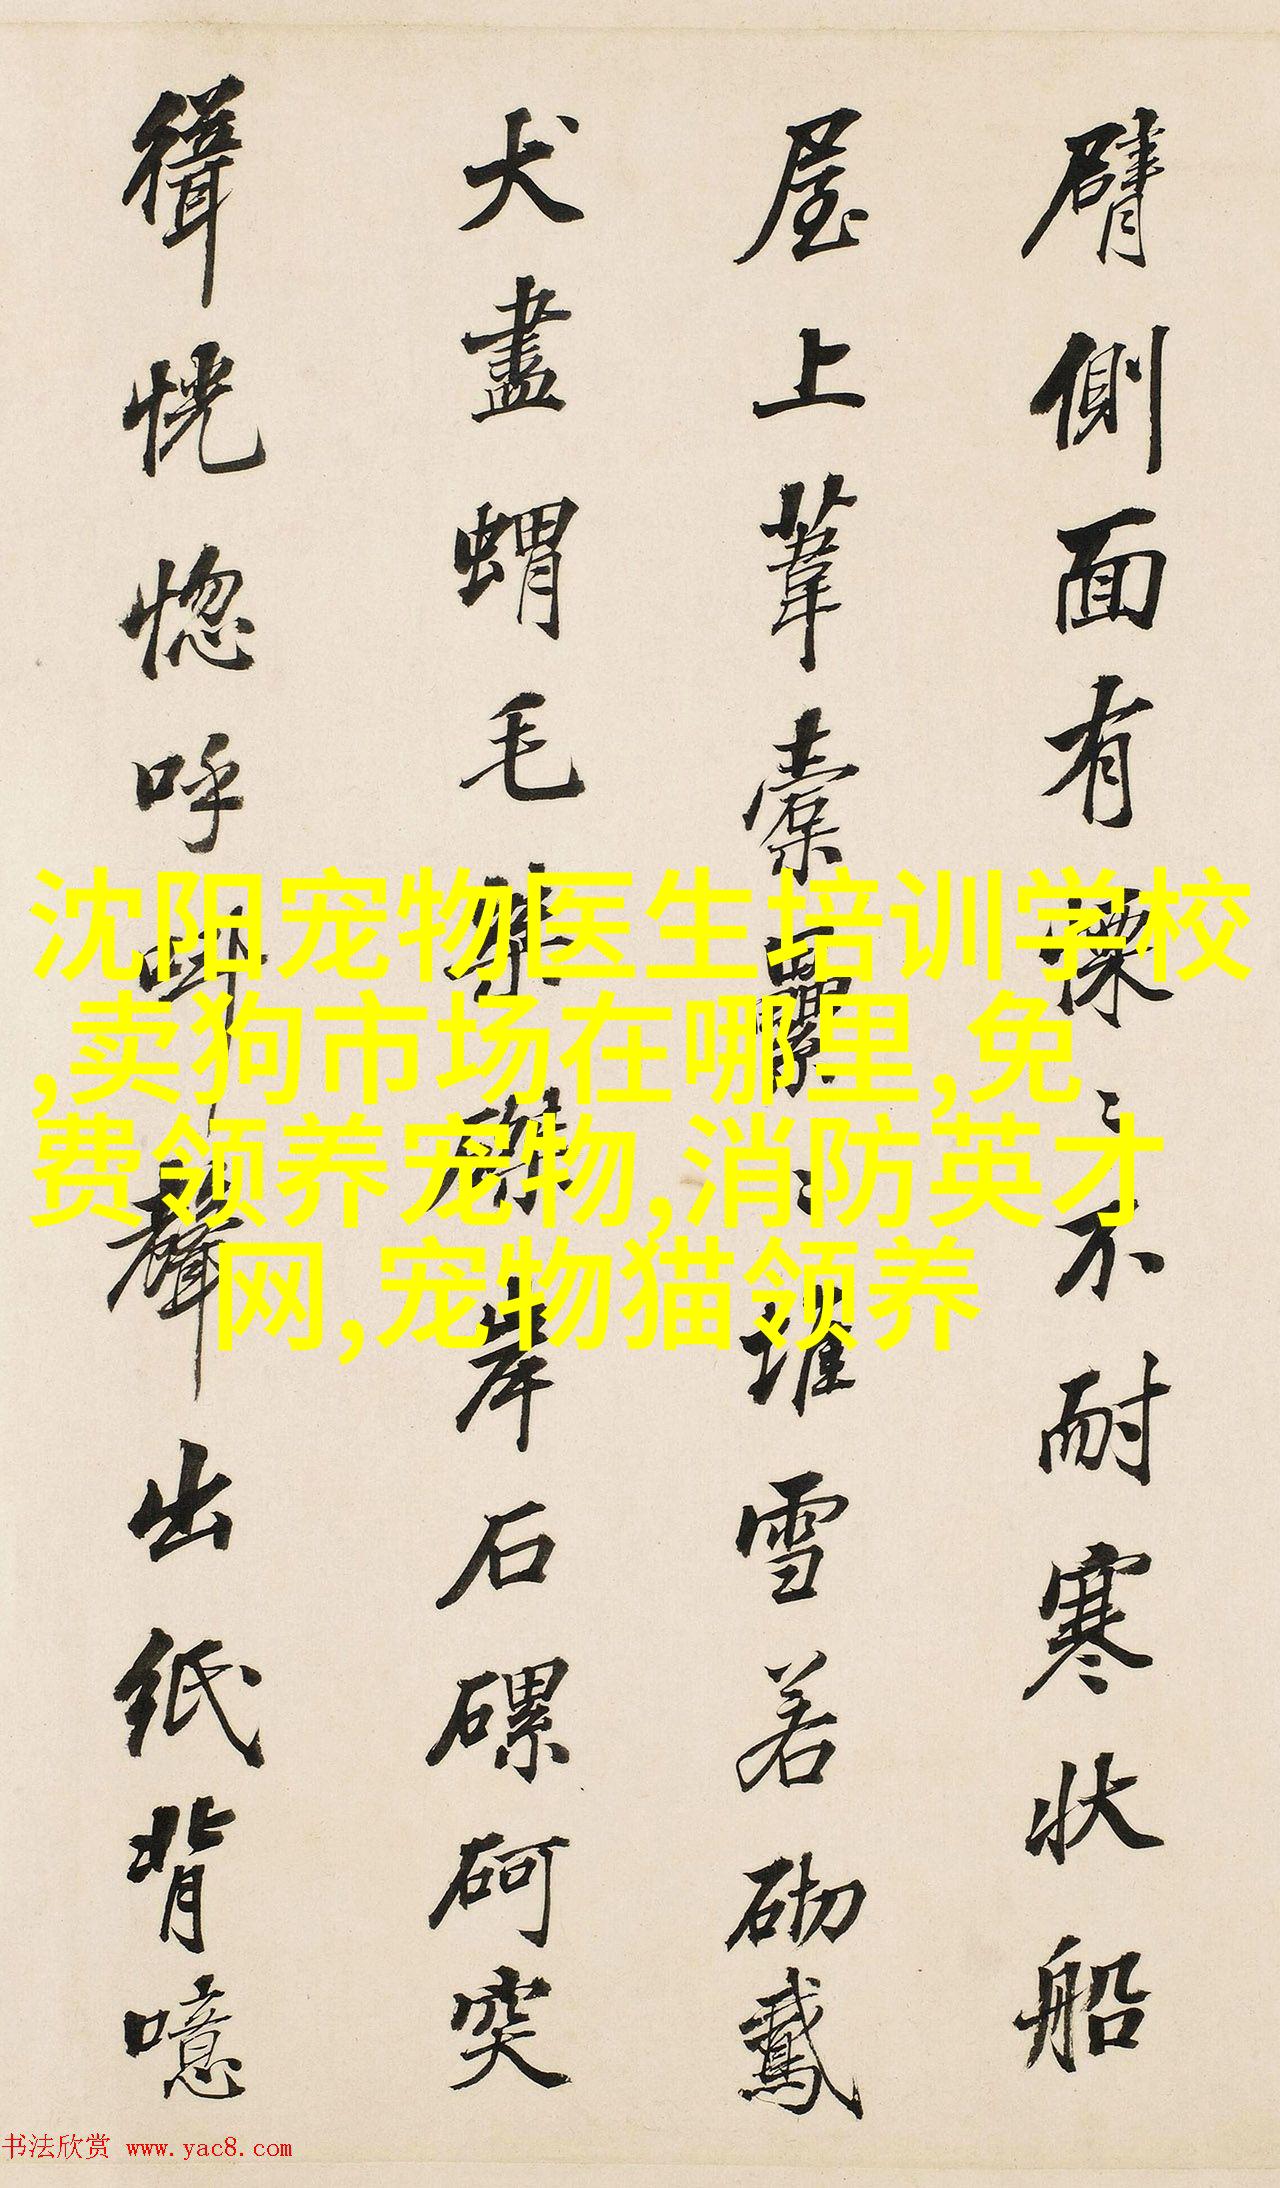 臂側面有慄〻不耐寒狀船
屋上葦橐纍〻堆雪若砌鵞
犬盡蝟毛磔磔岸石磥砢突
緝恍惚呼呼聲出紙背噫
沈阳宠物医生培训学校
,卖狗市场在哪里,免
费领养宠物,消防英才
网,宠物猫领养
书法欣赏 www.yac8.com